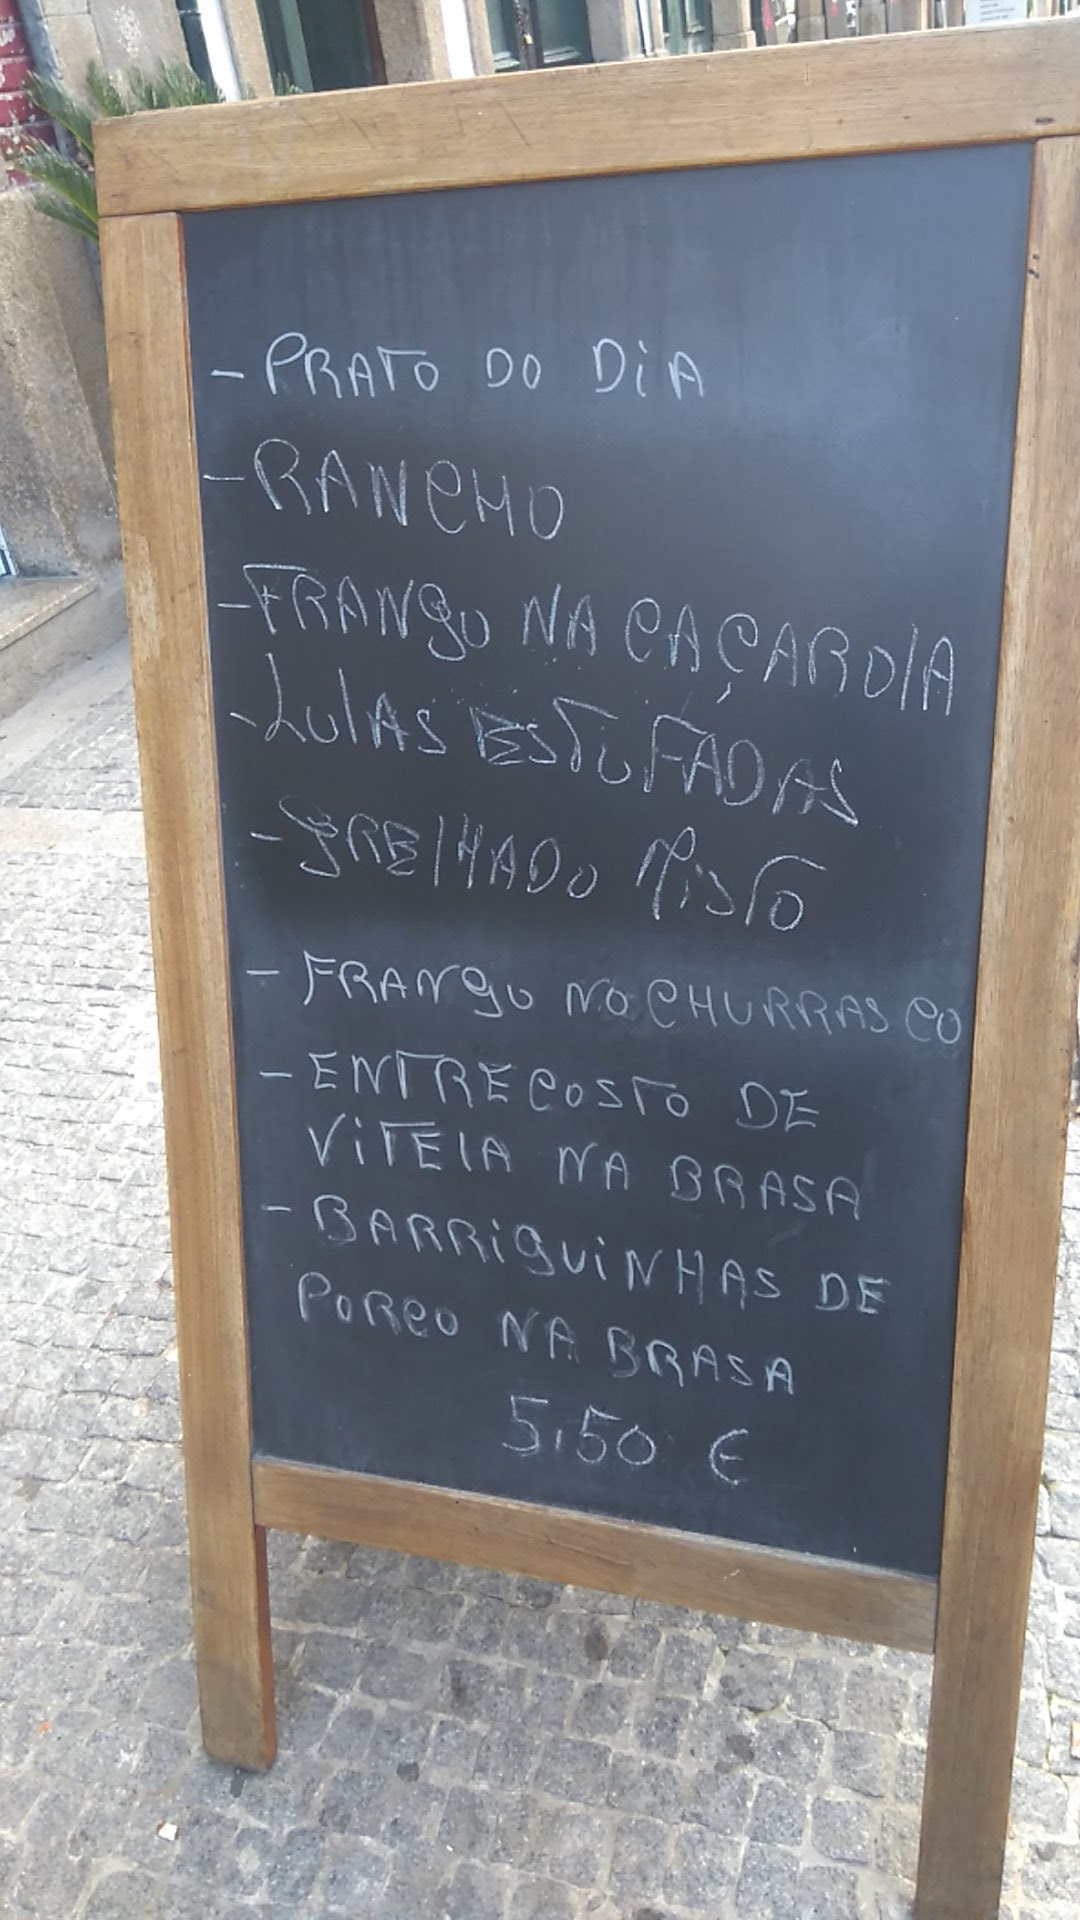 - PRATO DO DiA
- RANCHO
- FRANgO NA CAÇAROlA
- LulAS ESTUFADAS
- gRElHADO MiSTO
- FRANgO NO CHURRASCO
- ENTRECOSTO DE
ViTElA NA BRASA
- BARRiguiNHAS DE
PORCO NA BRASA
5,50 €